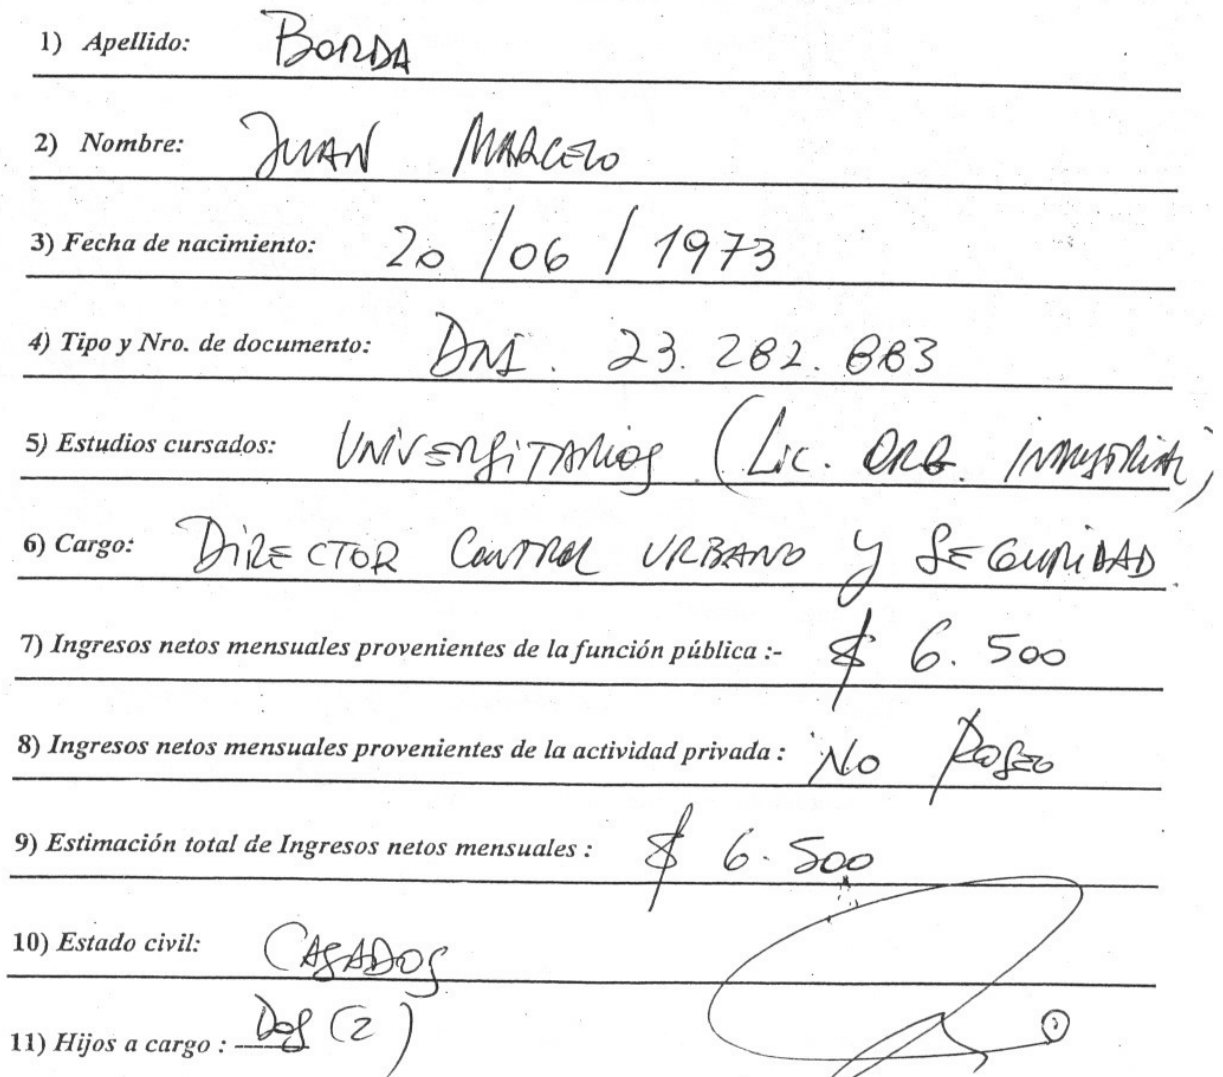 1) Apellido: BORDA
2) Nombre: JUAN MARCELO
3) Fecha de nacimiento: 20 / 06 / 1973
4) Tipo y Nro. de documento: DNI. 23.282.883
5) Estudios cursados: UNIVERSITARIOS (Lic. ORG. INDUSTRIAL)
6) Cargo: DIRECTOR CONTROL URBANO Y SEGURIDAD
7) Ingresos netos mensuales provenientes de la función pública :- $ 6.500
8) Ingresos netos mensuales provenientes de la actividad privada : No Poseo
9) Estimación total de Ingresos netos mensuales : $ 6.500
10) Estado civil: CASADOS
11) Hijos a cargo : Dos (2)